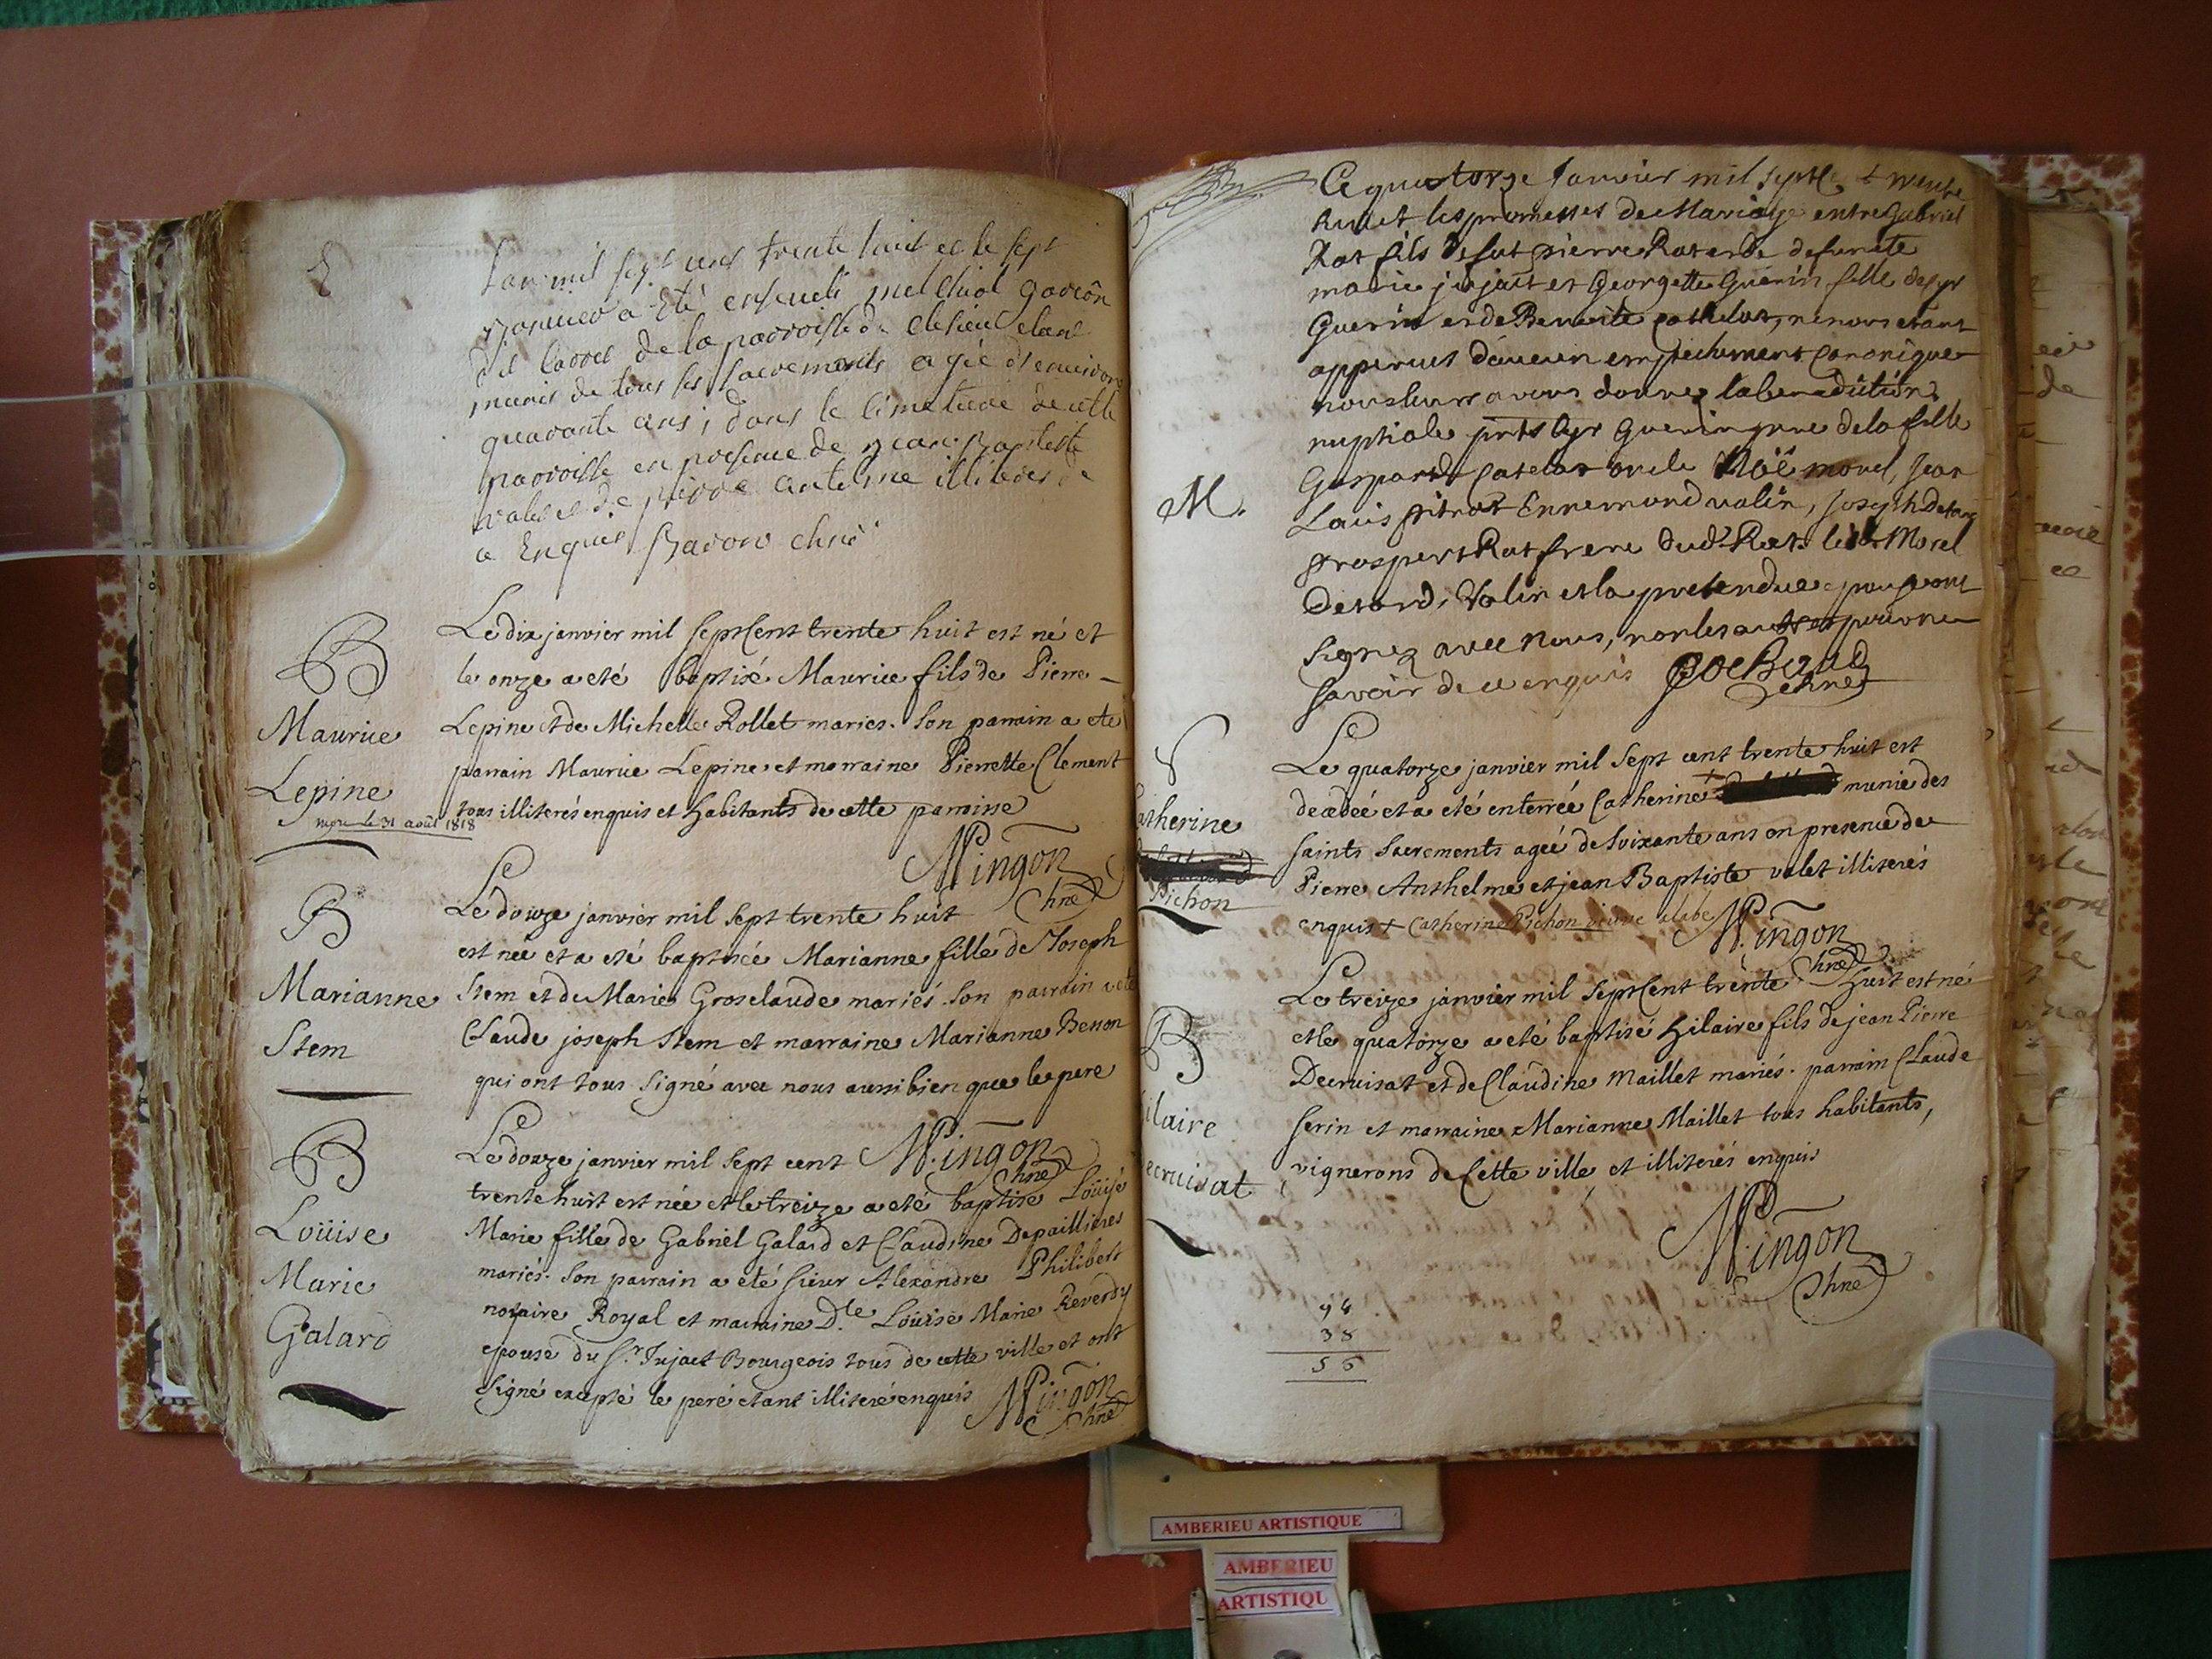 L'an mil sept cent trente huit et le sept
janvier a été enseveli melchiol garcon
dit de la parroisse de
munis de tous ses sacrements agé d'environ
quarante ans, dans le cimetiere de cette
parroisse en presence de jean Baptiste
valet et de pierre antelme illiterés de
ce Enquis
B
Maurice
Lepine
Le dix janvier mil sept Cent trente huit est né et
le onze a eté baptisé Maurice fils de Pierre
Lepine et de Michelle Rollet mariés. Son parrain a eté
parrain Maurice Lepine et marraine Pierrette Clement
le 31 août 1818
tous illiterés enquis et habitants de cette paroisse
Mingon
Chne
B
Marianne
Stem
Le douze janvier mil Sept trente huit
est née et a eté baptisée Marianne fille de Joseph
Stem et de Marie Grosclaude mariés Son parrain a eté
Claude joseph Stem et marraine Marianne Besson
qui ont tous Signé avec nous aussi bien que le pere
Mingon
Chne
B
Loüise
Marie
Galard
Le douze janvier mil Sept cent
trente huit est née et le treize a eté baptise Loüise
Marie fille de Gabriel Galard et Claudine Depaillieres
mariés. Son parrain a été sieur Alexandre Philibert
notaire Royal et marraine D.le Loüise Marie Reverdy
epouse du S.r Jujat Bourgeois tous de cette ville et ont
Signé excepté le pere etant illiteré enquis
Mingon
Chne
Ce quatorze Janvier mil sept
huict les promesses de Mariage entre Gabriel
Rat fils de fut pierre Rat et de defuncte
marie jujat et Georgette Guerin fille de
Guerin et de Benoite patelat, ne nous etant
apperçus d'aucun empechement Canonique
nous leurs avons donnez la benediction
nuptiale Guerin pere de la fille
Gaspard patelat oncle Noë morel, Jean
Louis pitrat Ennemond valin, Joseph
prospert Rat frere dud. Rat. Morel
Valin et la pretendue epouse ont
M.
Signez avec Nous, non les autres pour ne
savoir de ce enquis
Chne
Catherine
Pichon
Le quatorze janvier mil Sept cent trente huit est
decedée et a eté enterrée Catherine + munie des
Saints Sacrements agée de Soixante ans en presence de
Pierre Anthelme et jean Baptiste valet illiterés
enquis + Catherine Pichon veuve
Mingon
Chne
B
ilaire
ecruisat
Le treize janvier mil Sept Cent trente huit est né
et le quatorze a eté baptisé Hilaire fils de jean Pierre
Decruisat et de Claudine Maillet mariés. parrain Claude
Serin et marraine Marianne Maillet tous habitants,
vignerons de Cette ville et illiterés enquis
Mingon
Chne
94
38
56
AMBERIEU ARTISTIQUE
AMBERIEU
ARTISTIQU